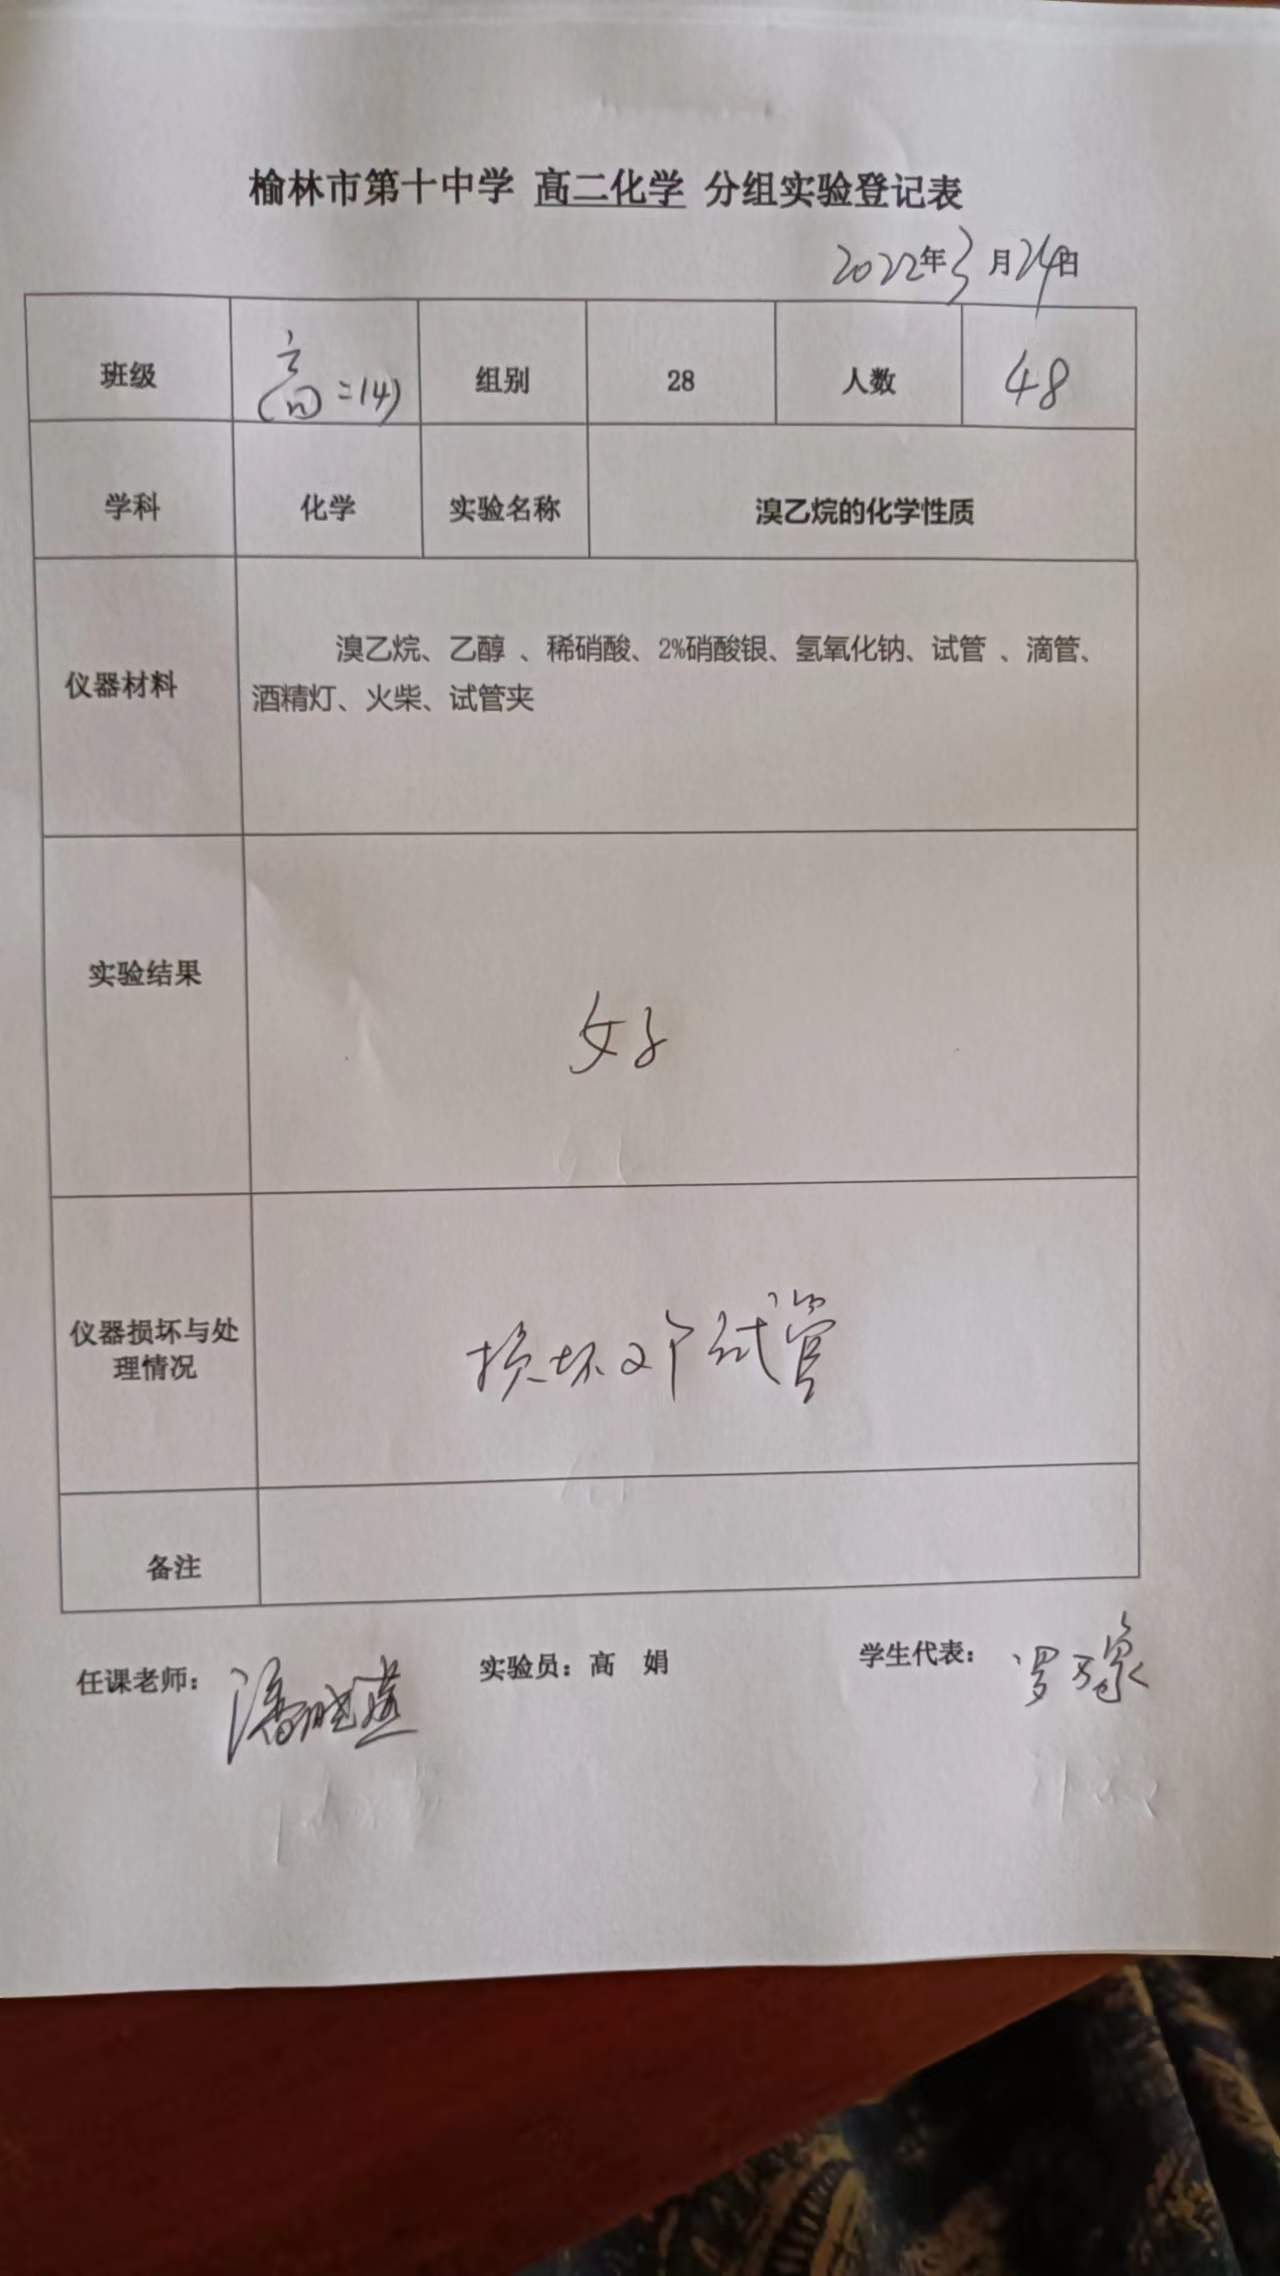 榆林市第十中学 高二化学 分组实验登记表
2022年3月24日
班级 高二(14) 组别 28 人数 48
学科 化学 实验名称 溴乙烷的化学性质
仪器材料
溴乙烷、乙醇 、稀硝酸、2%硝酸银、氢氧化钠、试管 、滴管、
酒精灯、火柴、试管夹
实验结果
好
仪器损坏与处
理情况
损坏2个试管
备注
任课老师: 实验员: 高 娟 学生代表: